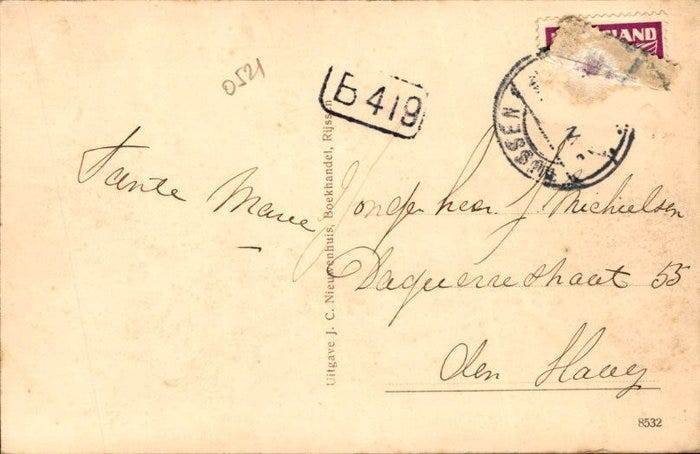 0521
B 419
LAND
RIJSSEN
Tante Marie
Jongeheer J. Michielsen
Daguerrestraat 55
den Haag
Uitgave J. C. Nieuwenhuis, Boekhandel, Rijssen
8532